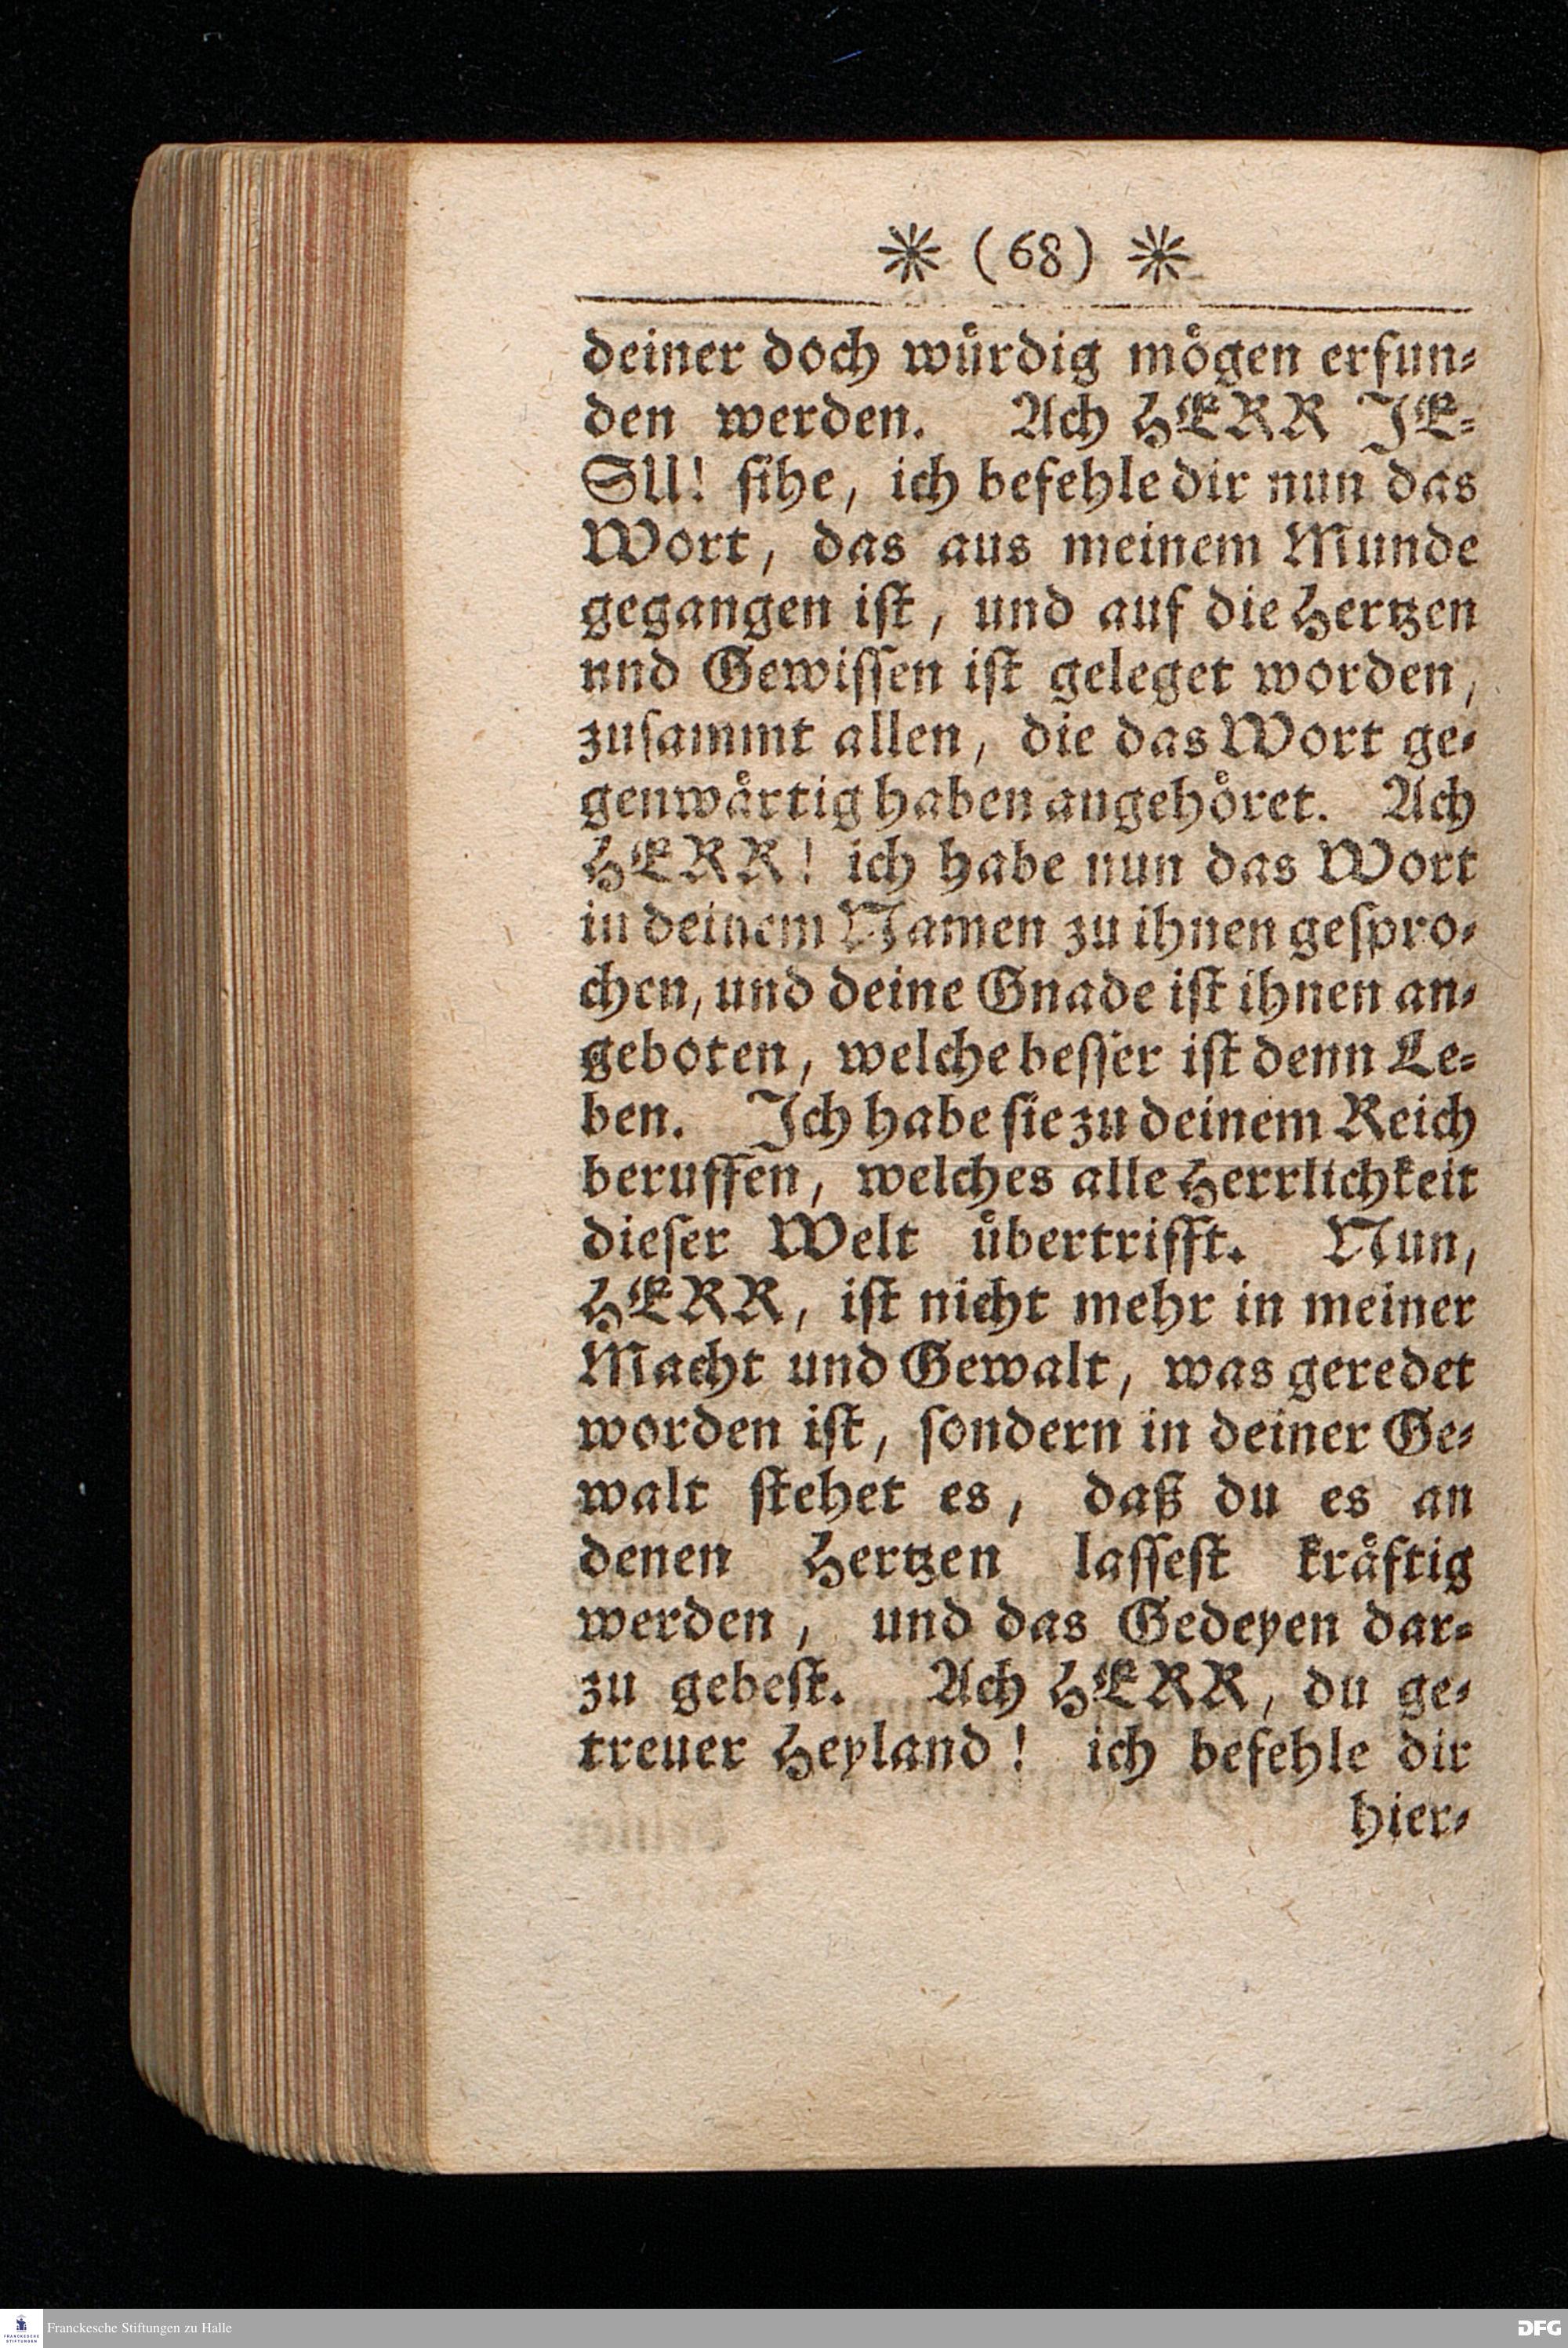 * (68) *
deiner doch wuͤrdig moͤgen erfun-
den werden. Ach HERR JE-
SU! ſihe, ich befehle dir nun das
Wort, das aus meinem Munde
gegangen iſt, und auf die Hertzen
nnd Gewiſſen iſt geleget worden,
zuſammt allen, die das Wort ge-
genwaͤrtig haben augehoͤret. Ach
HERR! ich habe nun das Wort
in deinem Namen zu ihnen geſpro-
chen, und deine Gnade iſt ihnen an-
geboten, welche beſſer iſt denn Le-
ben. Ich habe ſie zu deinem Reich
beruffen, welches alle Herrlichkeit
dieſer Welt uͤbertrifft. Nun,
HERR, iſt nicht mehr in meiner
Macht und Gewalt, was geredet
worden iſt, ſondern in deiner Ge-
walt ſtehet es, daß du es an
denen Hertzen laſſeſt kraͤftig
werden, und das Gedeyen dar-
zu gebeſt. Ach HERR, du ge-
treuer Heyland! ich befehle dir
hier-
Franckesche Stiftungen zu Halle
DFG